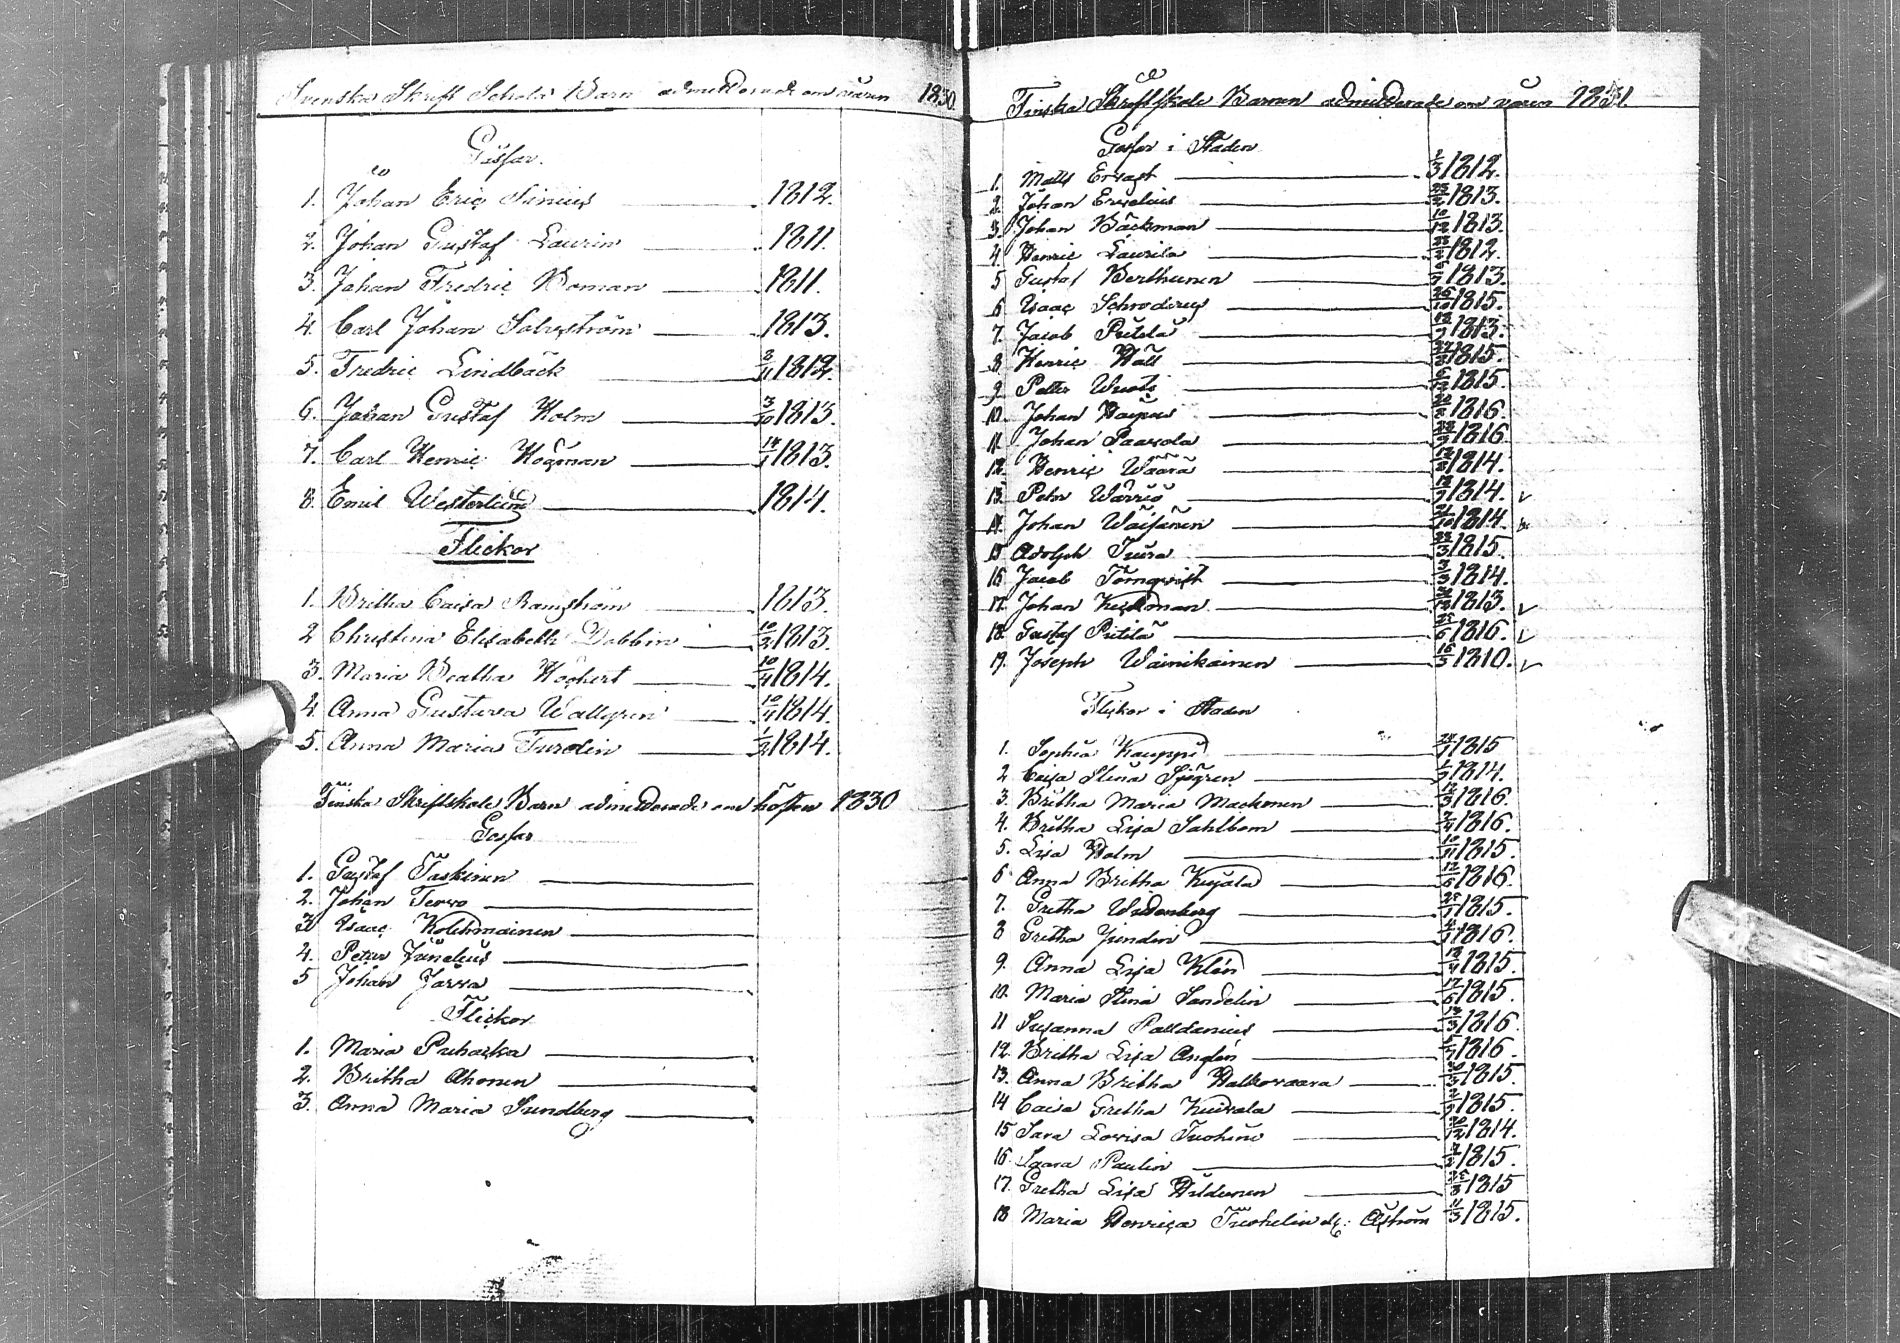 Svenska Skrift Schola Barn admitterade om våren 1830.
Gossar.
1. Johan Eric Simius 1812.
2. Johan Gustaf Laurin 1811.
3. Johan Fredric Boman 1811.
4. Carl Johan 1813.
5. Fredric Lindbäck 2/11 1812.
6. Johan Gustaf Holm 3/10 1813.
7. Carl Henric Högman 14/1 1813.
8. Emil Westerlund 1814.
Flickor
1. Britha Caisa Ramström 1813.
2 Christina Elisabeth Dobbin 10/2 1813.
3. Maria Beatha Höckert 10/4 1814.
4. Anna Gustava Wallgren 10/4 1814.
5. Anna Maria Turdin 1/2 1814.
Finska Skriftskole Barn admitterade om hösten 1830
Gossar
1. Gustaf Taskinen
2. Johan Tervo
3 Isaac Kolehmainen
4. Petter Junelius
5 Johan Jarva
Flickor
1. Maria Puhacka
2. Britha Ahonen
3. Anna Maria Sundberg
Finska Skriftskole Barnen admitterade om våren 1831.
Gossar i Staden
1. Matts Ervast 1/3 1812.
2. Johan Ervelius 1813.
3. Johan Bäckman 10/12 1813.
4. Henric Laurila 1812.
5 Gustaf Berthunen 1813.
6 Isaac Schroderus 26/10 1815.
7. Jacob Pietilä 1813.
8 Henric Wäll 1815.
9. Petter 6/12 1815.
10. Johan 1816.
11. Johan Paavola 1816
12. Henric Waara 1814.
13. Pehr Warrio 1814. v
14. Johan Wäisänen 21/10 1814.
15 Adolph Tuira 22/3 1815.
16 Jacob Törnqvist 3/3 1814.
17. Johan 1813. v
18. Gustaf Pietilä 25/6 1816. v
19. Joseph Wäinikäinen 16/3 1810. v
Flickor i Staden
1. Sophia Kauppi 1815
2 Caisa Stina Sjögren 1814.
3. Britha Maria Mackonen 12/3 1816.
4. Britha Lisa Sahlbom 1816.
5. Lisa Holm 10/11 1815.
6 Anna Britha Kujala 12/6 1816.
7. Gretha Widenberg 1815.
8 Gretha 1816.
9. Anna Lisa Klén 1815.
10. Maria Stina Sandelin 17/6 1815.
11 Susanna Palldanius 1816.
12. Britha Lisa Anglén 1816.
13. Anna Britha Halkovaara 1815.
14 Caisa Gretha Kuivala 1815.
15 Sara Lovisa Tuohino 20/12 1814.
16. Saara Paulin 1815.
17. Gretha Lisa Hildunen 1815
18 Maria Henrica Åström 11/3 1815.